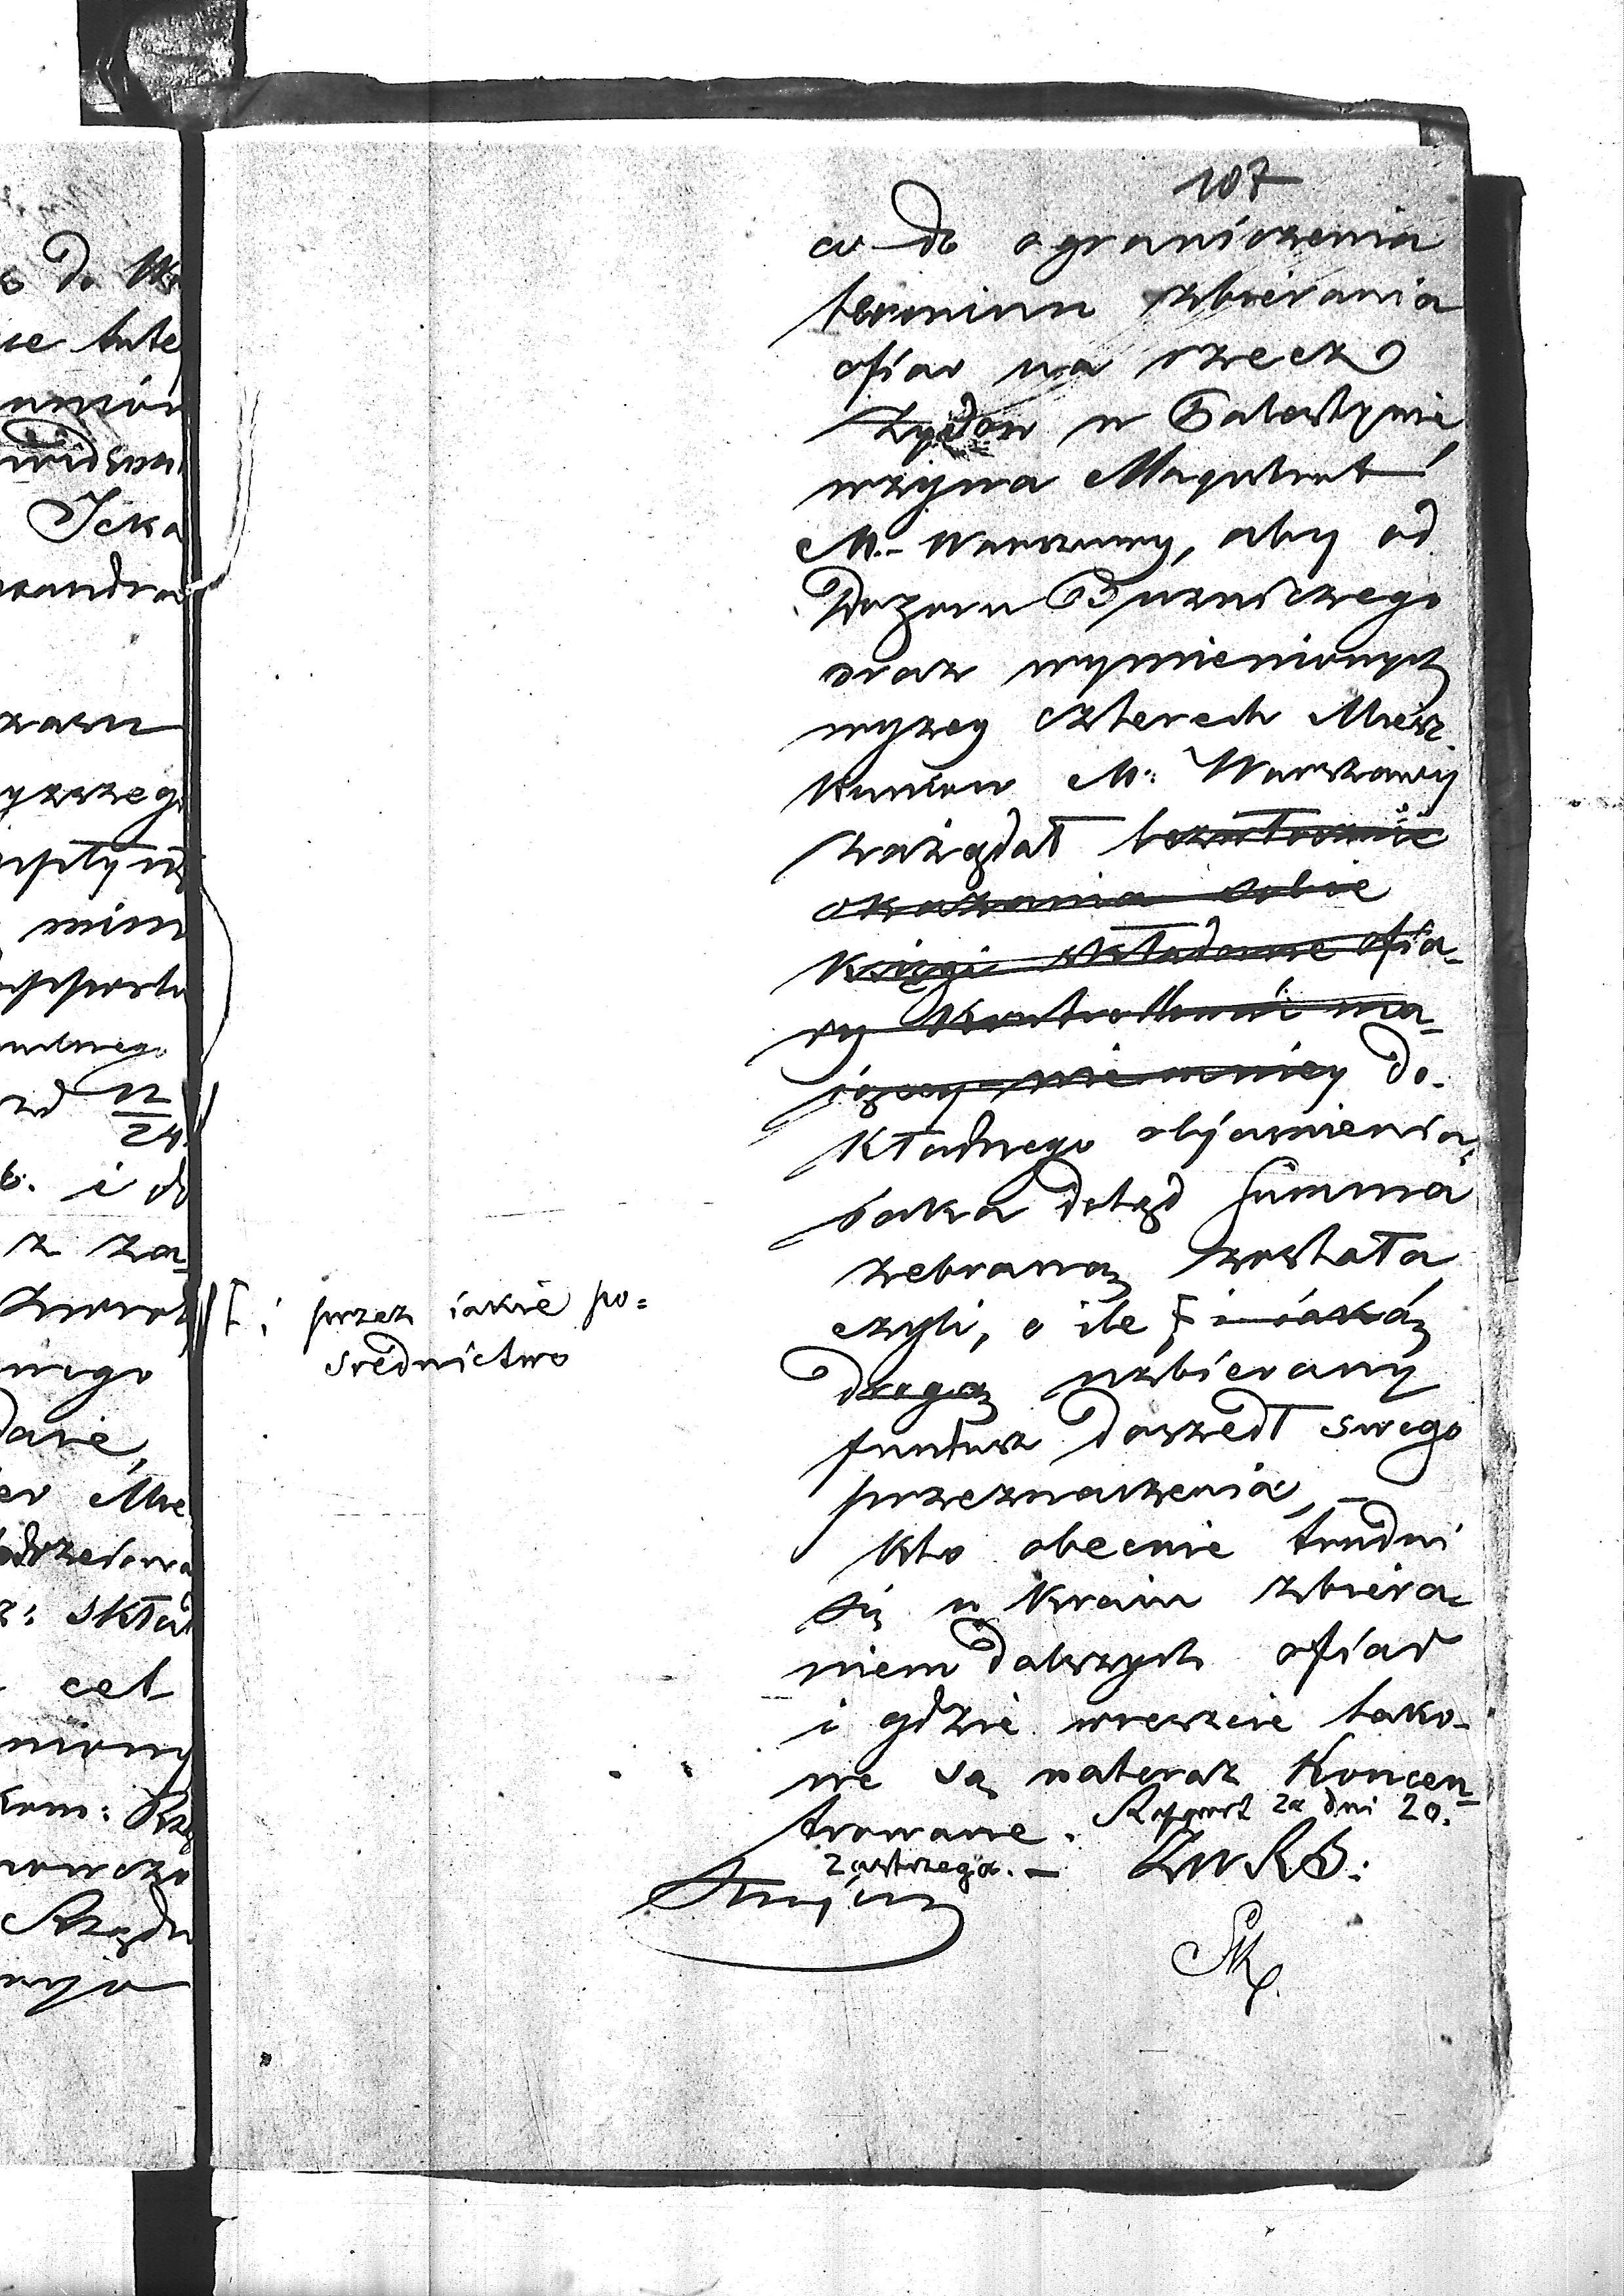 107
co do ograniczenia
terminu zbierania
ofiar na rzecz
Żydów w Palestynie
wzywa Magistrat
M. Warszawy, aby od
Dozoru Bużniczego
oraz wymienionych
wyżey czterech Miesz
kańców M: Warszawy
zażądał bezwłocznie
okazania sobie
księgi składowe ofia-
ry kontrollować ma-
iącey niemniey do-
kładnego obiaśnienia,
iaka dotąd summa
zebraną została
czyli, o ile F i iaką
drogą uzbierany
fundusz doszedł swego
przeznaczenia, —
kto obecnie trudni
się w kraiu zbiera-
niem dalszych ofiar
i gdzie wreszcie tako-
we są nateraz koncen-
trowane.
Rapport za dni 20.
zastrzega. —
F i przez iakie po=
srednictwo
s do
ce tute
Icka
zasu
yższego
mim
12
24
6. i do
z za-
nego
danie,
składa
cel
Kom: Rz
Rządu